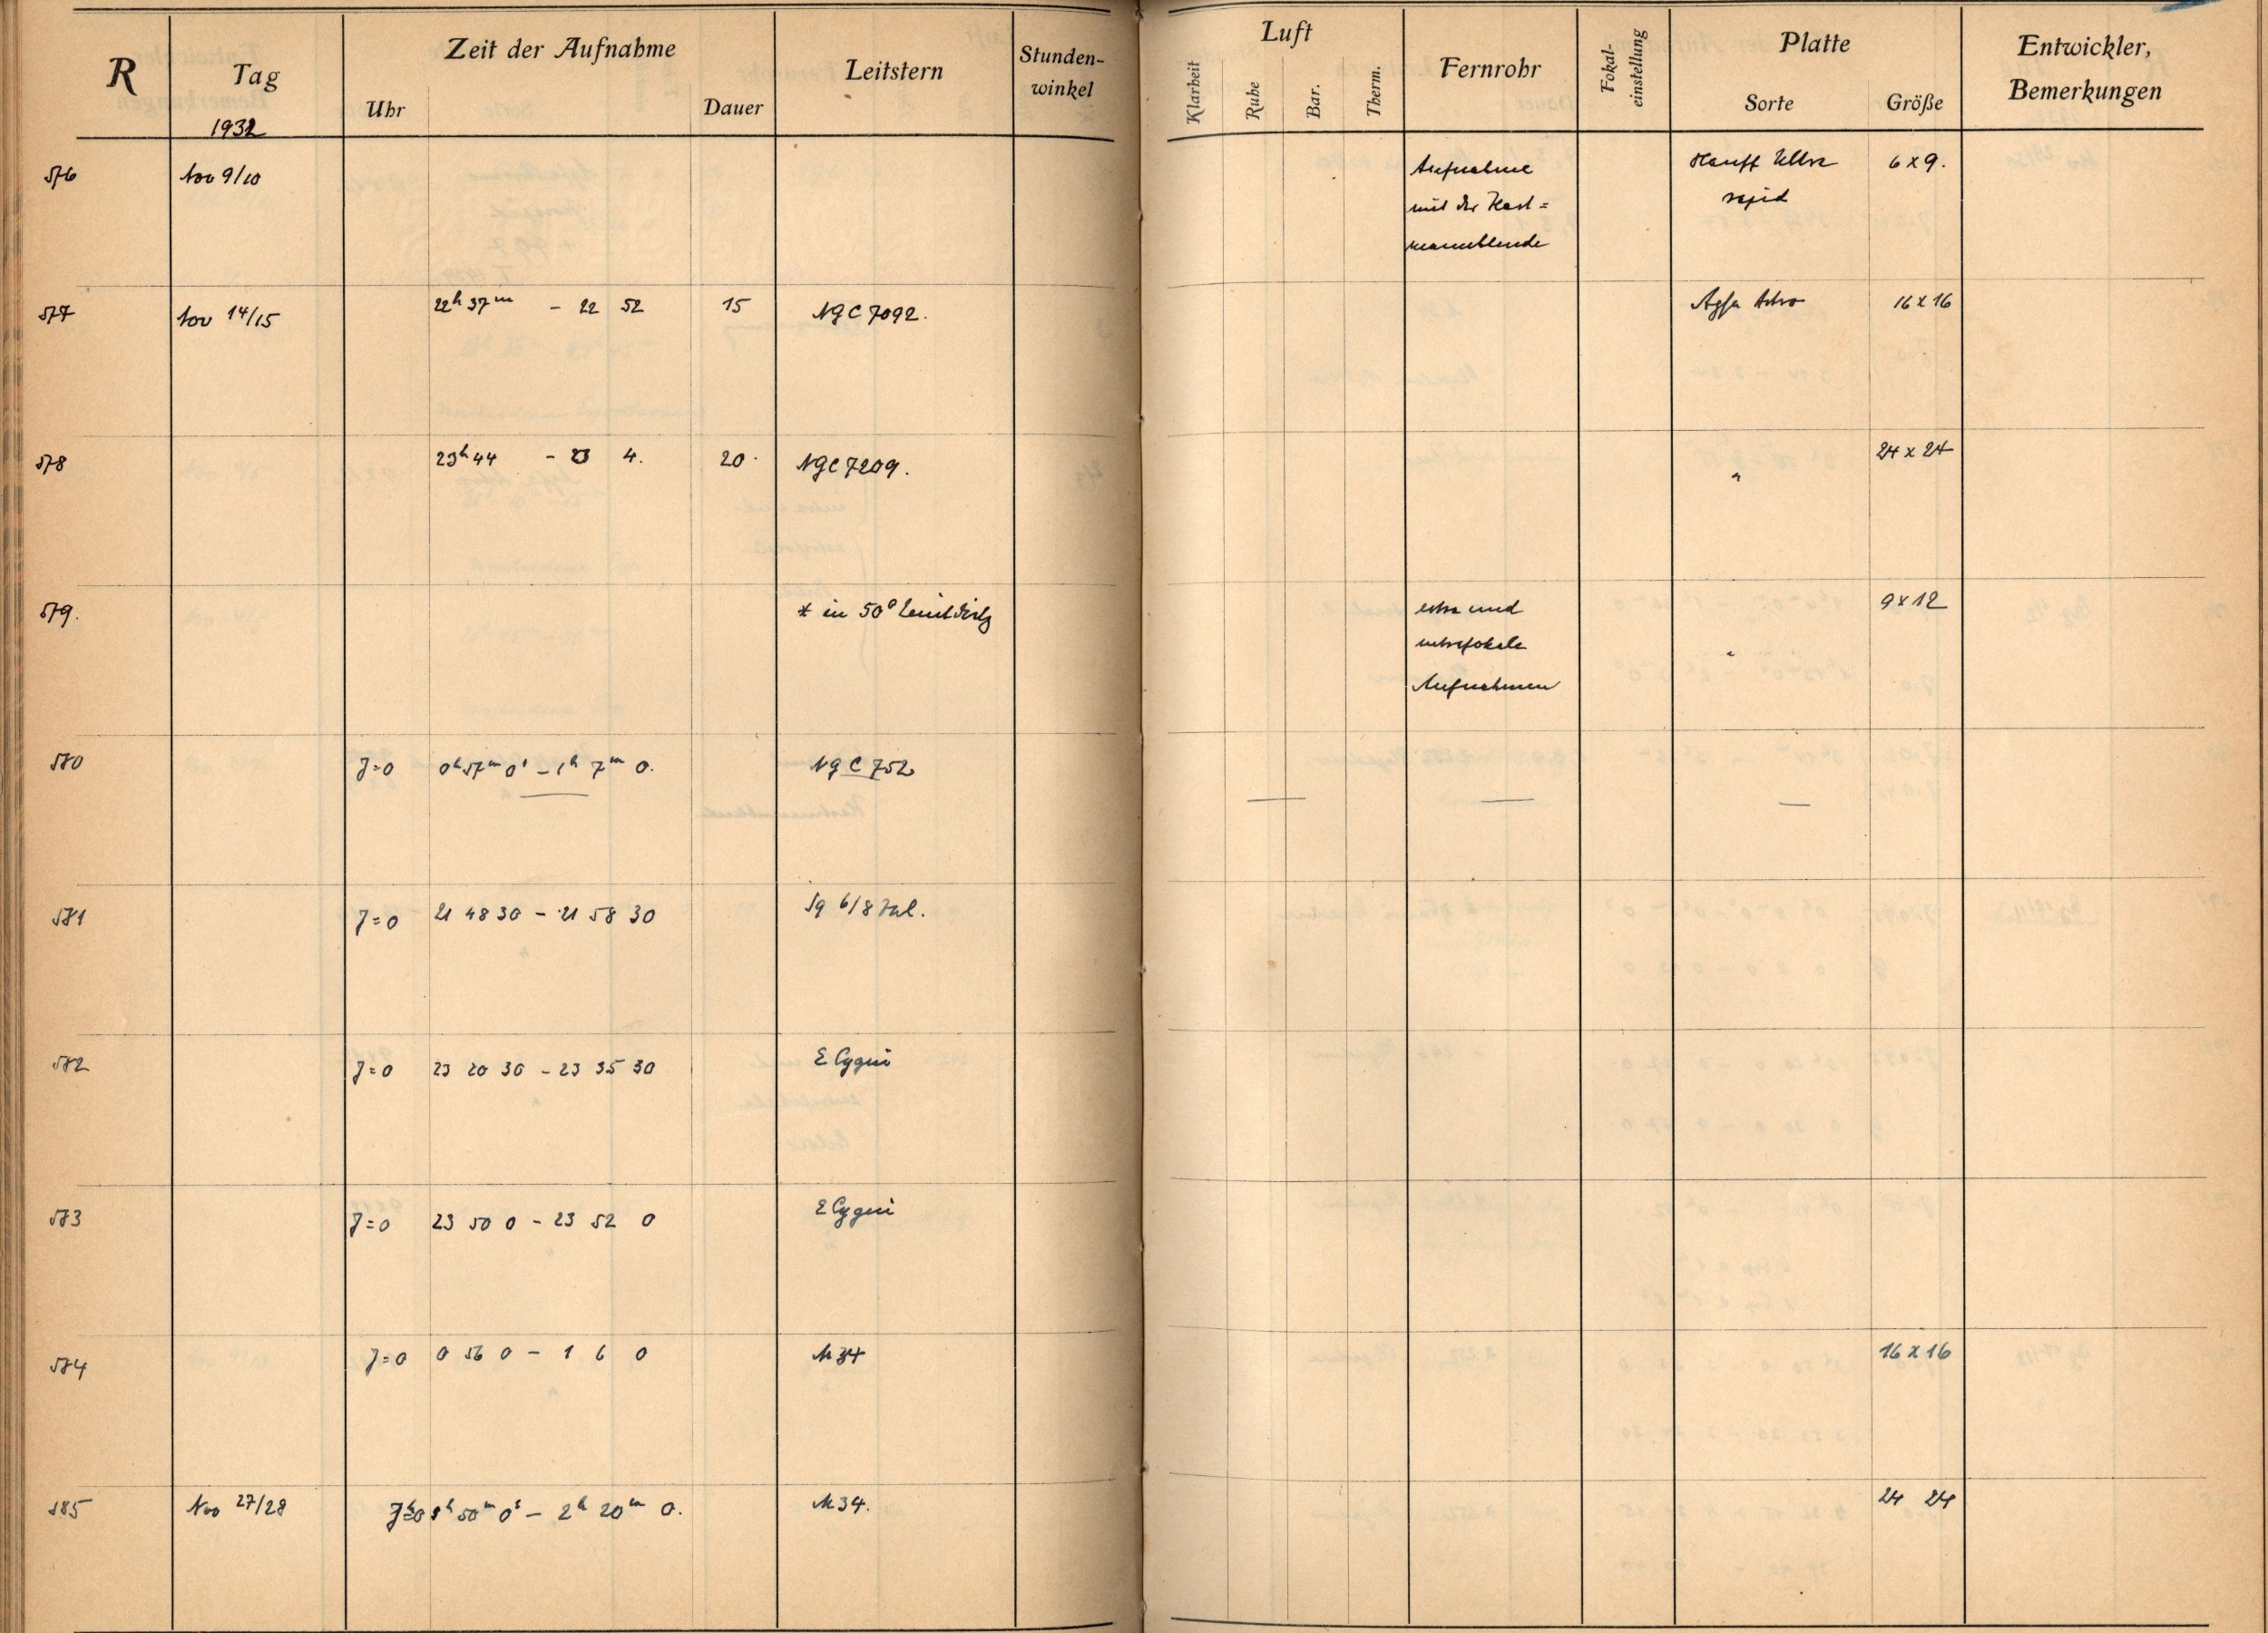 R Tag Zeit der Aufnahme Leitstern Stunden-
winkel
Uhr Dauer
1932
Luft Fernrohr Fokal-
einstellung Platte Entwickler,
Bemerkungen
Klarheit Ruhe Bar. Therm. Sorte Größe
576 Nov 9/10 Aufnahme Hauff Ultra 6 x 9.
mit der Hart= rapid
mannblende
577 Nov 14/15 22h 37m - 22 52 15 NGC 7092. Agfa Astro 16 x 16
578 23h 44 - 4. 20 NGC 7209. " 24 x 24
579. * in 50° Zenitdistz extra und 9 x 12
intrafokale "
Aufnahmen
580 J=0 0h 57m 0s - 1h 7m 0. NGC 752
581 J=0 21 48 30 - 21 58 30
582 J=0 23 20 30 - 23 35 30 E Cygni
583 J=0 23 50 0 - 23 52 0 E Cygni
584 J=0 0 56 0 - 1 6 0 M 34 16 x 16
585 Nov 27/28 50m 0s - 2h 20m 0. M 34. 24 24